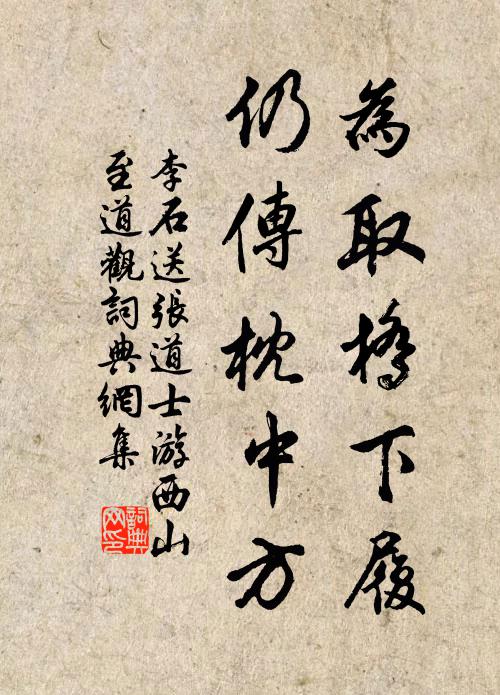 為取橋下履
仍傳枕中方
李石送張道士游西山
至道觀詞典網集
詞典网印